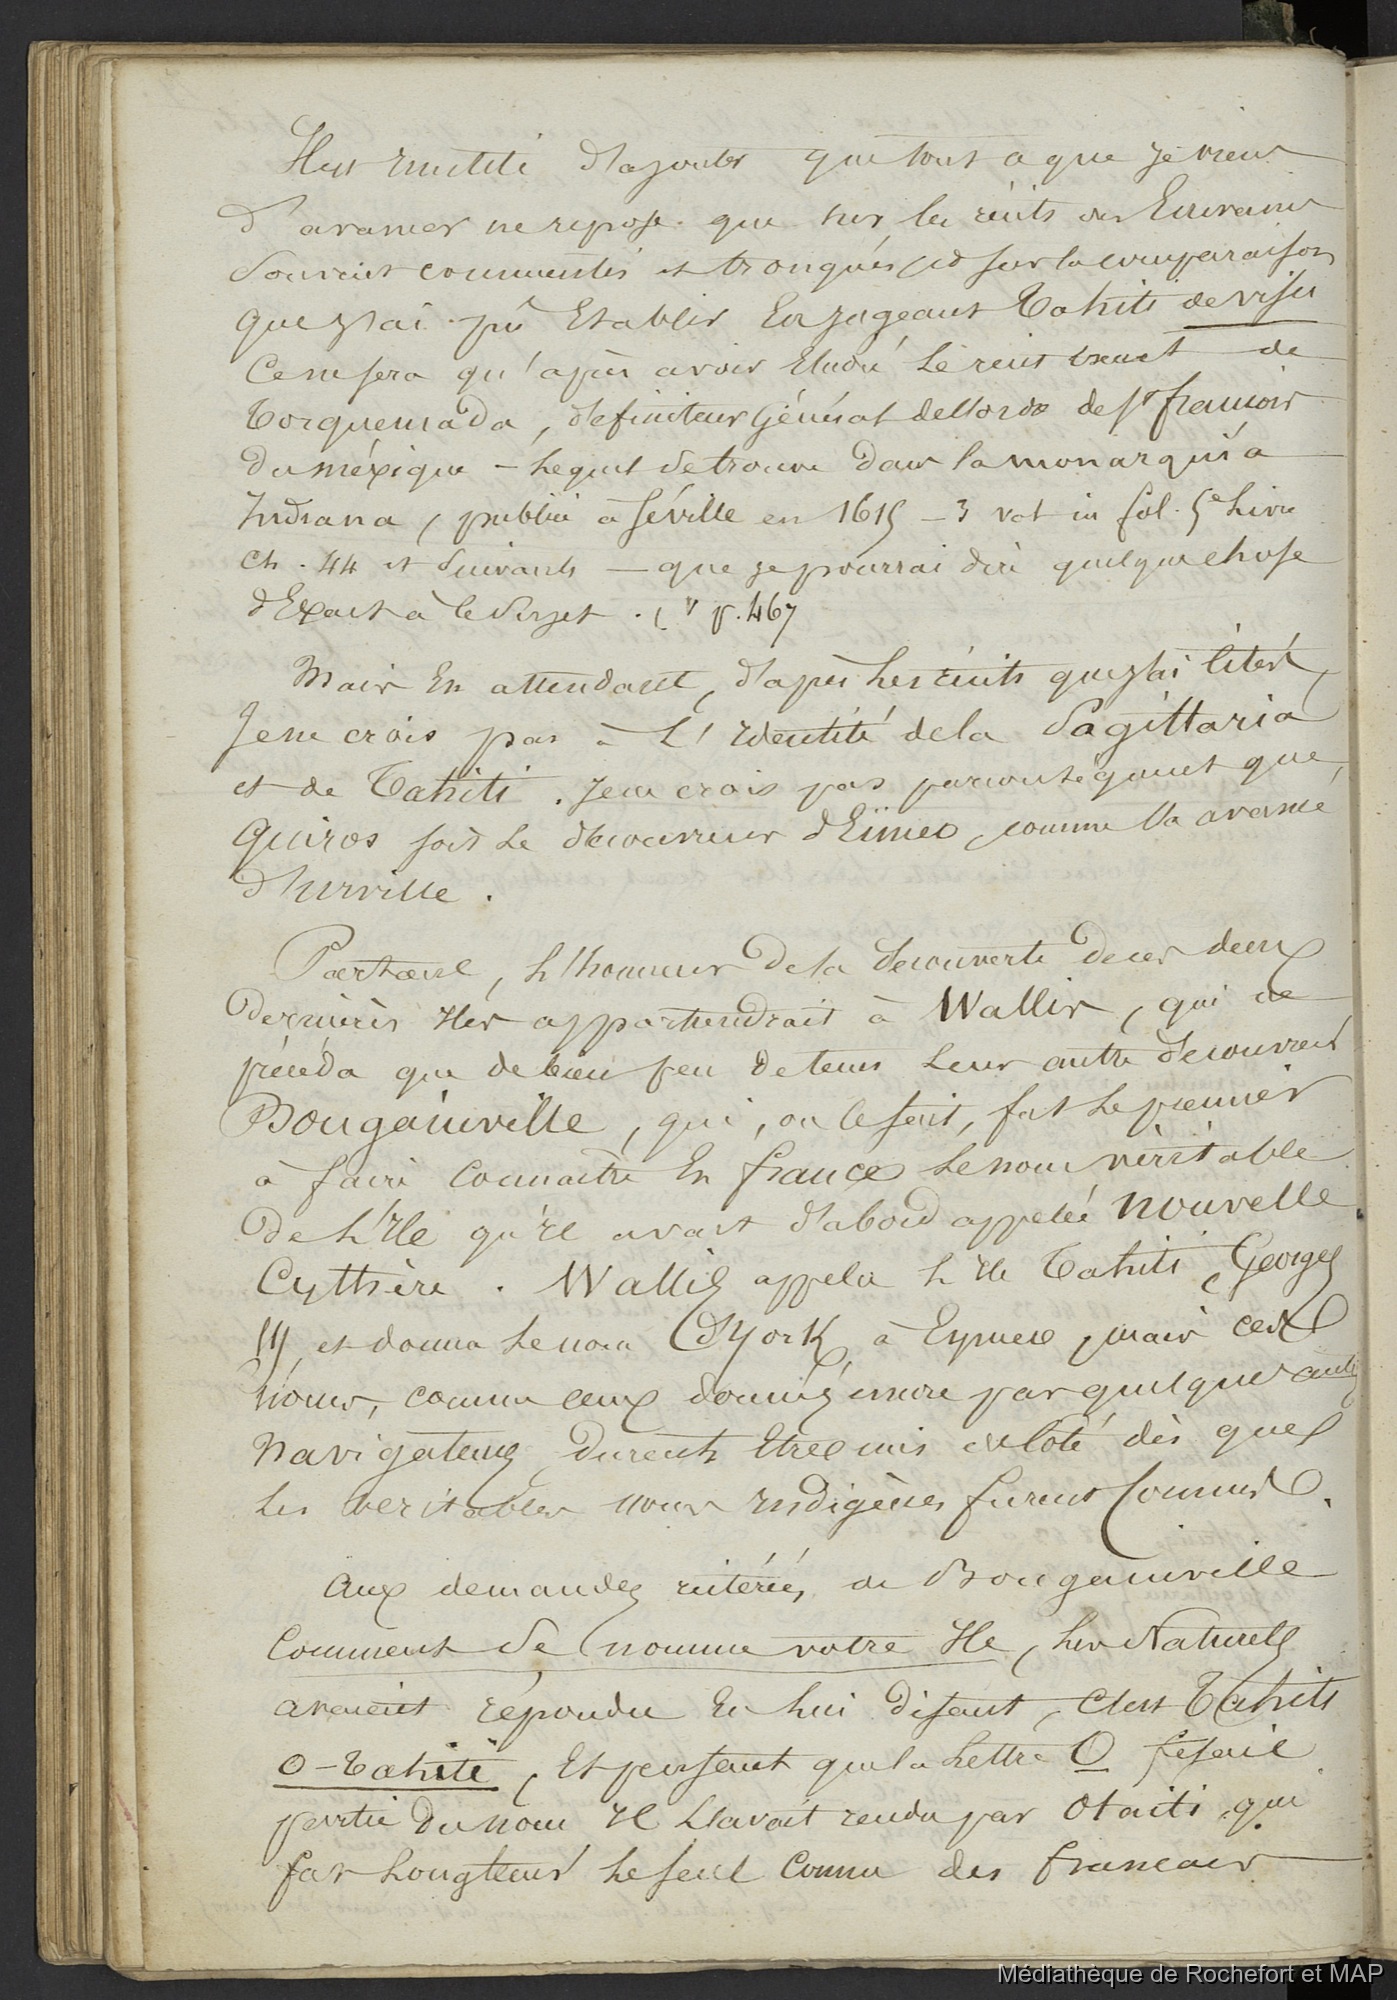 Il est inutile d'ajouter que tout ce que je viens
d'avancer ne repose que sur les récits des Ecrivains
souvent commentés et tronqués, et sur la comparaison
que j'ai pû Etablir En jugeant Tahiti de visu
Ce ne sera qu'après avoir Etudié le récit exact de
Torquemada, définiteur Général de l'ordre de St françois
du méxique – lequel se trouve dans la monarquia
Indiana, publié à Séville en 1615 – 3 vol in fol. 5e Livre
Ch. 44 et suivants — que je pourrai dire quelque chose
d'Exact à ce Sujet. (1) p. 467
Mais En attendant, d'après les récits que j'ai cités,
Je ne crois pas à L'Identité de la Sagittaria
et de Tahiti. Je ne crois pas par conséquent que,
Quiros soit le découvreur d'Eïmeo, comme l'a avancé
d'urville.
Partant, L'honneur de la découverte de ces deux
dernières Iles appartiendrait à Wallis, qui ne
précéda que de bien peu de tems leur autre découvreur
Bougainville, qui, on le sait, fut le premier
à faire connaître En france le nom véritable
de L'Ile qu'il avait d'abord appelée Nouvelle
Cythère. Wallis appela L'Ile Tahiti, Georges
III, et donna le nom d'York, à Eymeo, mais ces
noms, comme ceux donnés encore par quelques autres
Navigateurs, durent Etre mis de côté dès que
les véritables noms Indigènes furent connus.
Aux demandes réitérées de Bougainville
Comment se nomme votre Ile, les Naturels
avaient répondu En lui disant, C'est Tahiti
O-Tahiti, Et pensant que la Lettre O fesait
partie du nom Il L'avait rendu par Otaiti, qui
fut Longtems le seul connu des français
Médiathèque de Rochefort et MAP